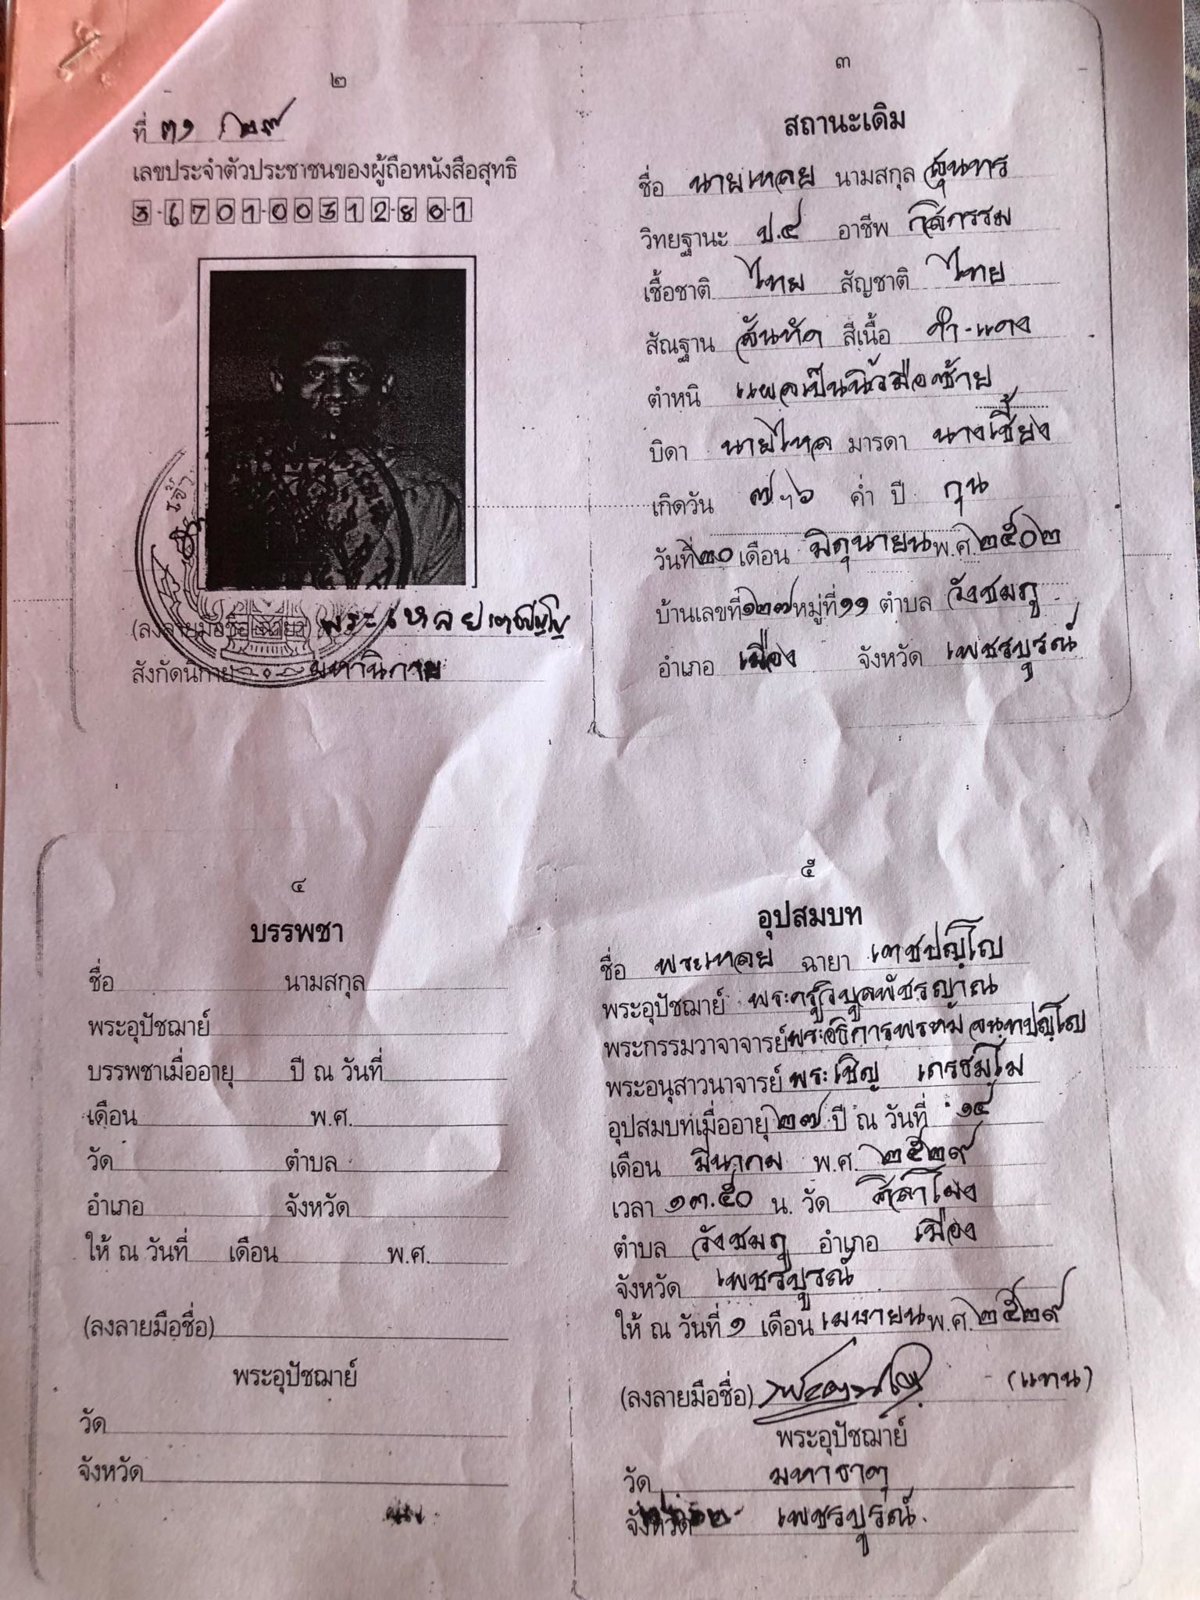 ๒
ที่ ๓๑ / ๒๕๒๙
เลขประจำตัวประชาชนของผู้ถือหนังสือสุทธิ
3-6701-00312-80-1
(ลงลายมือชื่อ พระเหลย เตชปญฺโญ
สังกัดนิกาย มหานิกาย
๓
สถานะเดิม
ชื่อ นายเหลย นามสกุล สุนทร
วิทยฐานะ ป.๔ อาชีพ กสิกรรม
เชื้อชาติ ไทย สัญชาติ ไทย
สัณฐาน สันทัด สีเนื้อ ดำ-แดง
ตำหนิ แผลเป็นนิ้วมือซ้าย
บิดา นายไหล มารดา นางเชี้ยง
เกิดวัน ๗ ฯ ๖ ค่ำ ปี กุน
วันที่ ๒๐ เดือน มิถุนายน พ.ศ. ๒๕๐๒
บ้านเลขที่ ๑๒๗ หมู่ที่ ๑๑ ตำบล วังชมภู
อำเภอ เมือง จังหวัด เพชรบูรณ์
๔
บรรพชา
ชื่อ นามสกุล
พระอุปัชฌาย์
บรรพชาเมื่ออายุ ปี ณ วันที่
เดือน พ.ศ.
วัด ตำบล
อำเภอ จังหวัด
ให้ ณ วันที่ เดือน พ.ศ.
(ลงลายมือชื่อ)
พระอุปัชฌาย์
วัด
จังหวัด
๕
อุปสมบท
ชื่อ พระเหลย ฉายา เตชปญฺโญ
พระอุปัชฌาย์ พระครูวิบูลพัชรญาณ
พระกรรมวาจาจารย์ พระอธิการพรหม จนฺทปญฺโญ
พระอนุสาวนาจารย์ พระเชิญ
อุปสมบทเมื่ออายุ ๒๗ ปี ณ วันที่ ๑๔
เดือน มีนาคม พ.ศ. ๒๕๒๙
เวลา ๑๓.๕๐ น. วัด ศิลาโมง
ตำบล วังชมภู อำเภอ เมือง
จังหวัด เพชรบูรณ์
ให้ ณ วันที่ ๑ เดือน เมษายน พ.ศ. ๒๕๒๙
(ลงลายมือชื่อ) (แทน)
พระอุปัชฌาย์
วัด มหาธาตุ
จังหวัด เพชรบูรณ์.